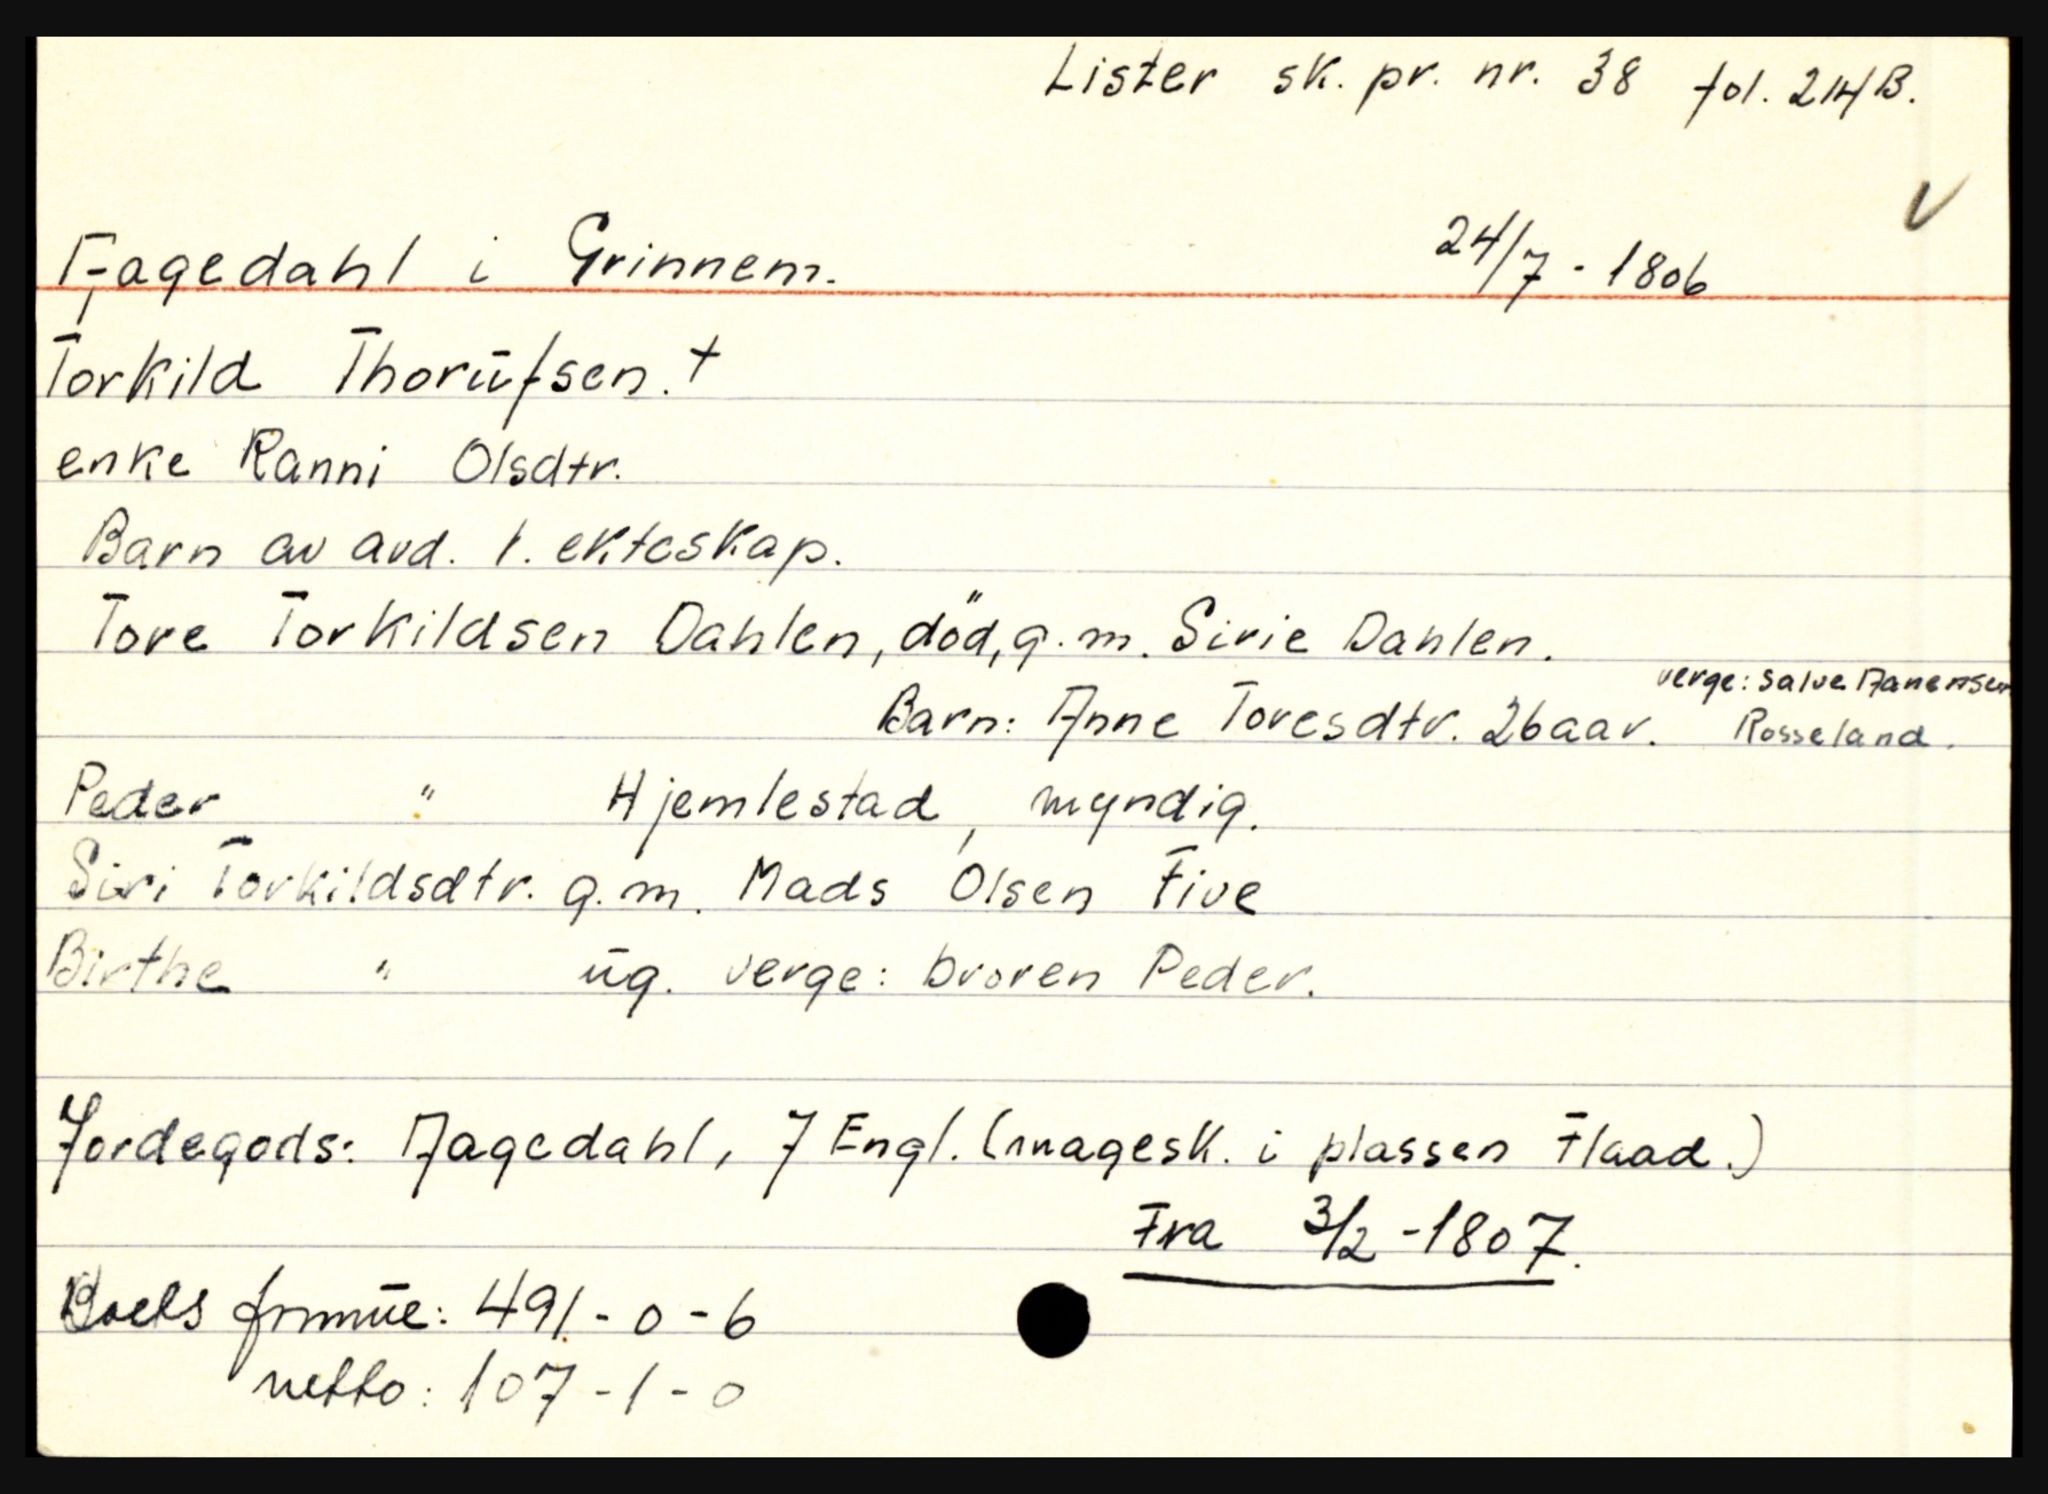 Lister sk. pr. nr. 38 fol. 214B.
V
Aagedahl i Grinnem. 24/7 - 1806
Torkild Thorüfsen. †
enke Ranni Olsdtr.
Barn av avd. 1. ekteskap.
Tore Torkildsen Dahlen, död, g.m. Sirie Dahlen.
verge: Salve Aanensen
Barn: Anne Toresdtr. 26 aar. Rosseland.
Peder " Hjemlestad, myndig.
Siri Torkildsdtr. g.m. Mads Olsen Five
Birthe " üg. verge: broren Peder.
Jordegods: Aagedahl, 7 Engl. (magesk. i plassen Flaad.)
Fra 3/2 - 1807.
Boets formüe: 491 - 0 - 6
netto: 107 - 1 - 0